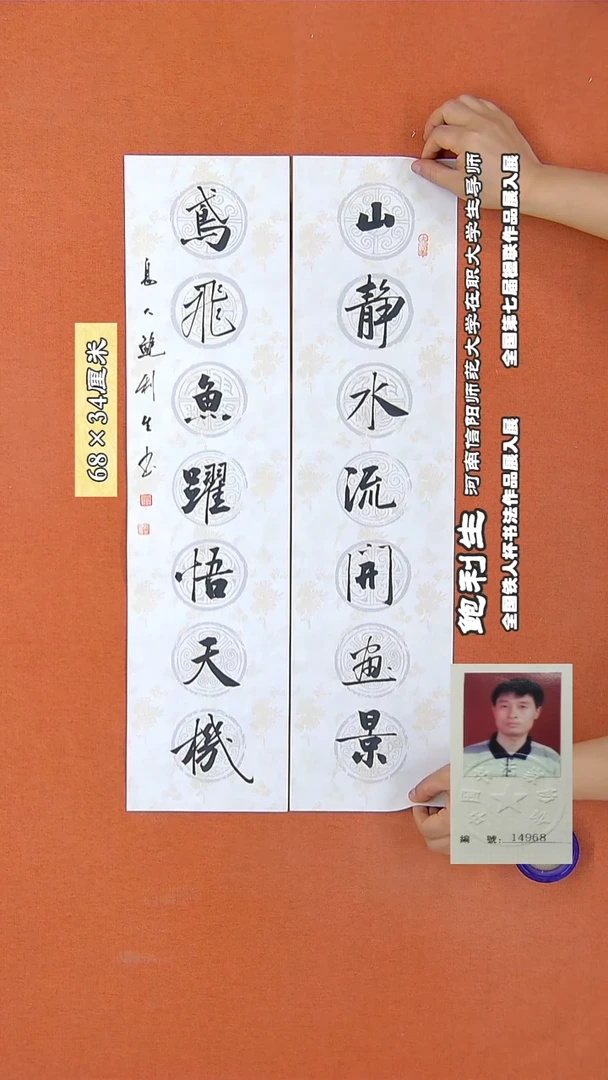 山静水流開画景
鳶飛魚躍悟天機
鮑利生书
68×34厘米
鲍利生 河南信阳师范大学在职大学生导师
全国铁人杯书法作品展入展 全国第七届楹联作品展入展
編 號: 14968